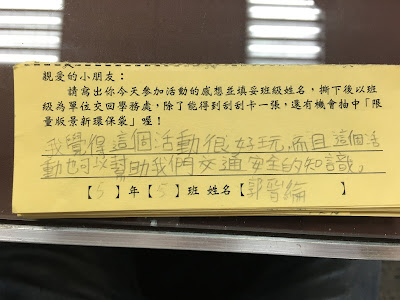 親愛的小朋友：
請寫出你今天參加活動的感想並填妥班級姓名，撕下後以班
級為單位交回學務處，除了能得到刮刮卡一張，還有機會抽中「限
量版景新環保袋」喔！
我覺得這個活動很好玩，而且這個活
動也可以幫助我們交通安全的知識。
【5】年【5】班 姓名【郭 綸】